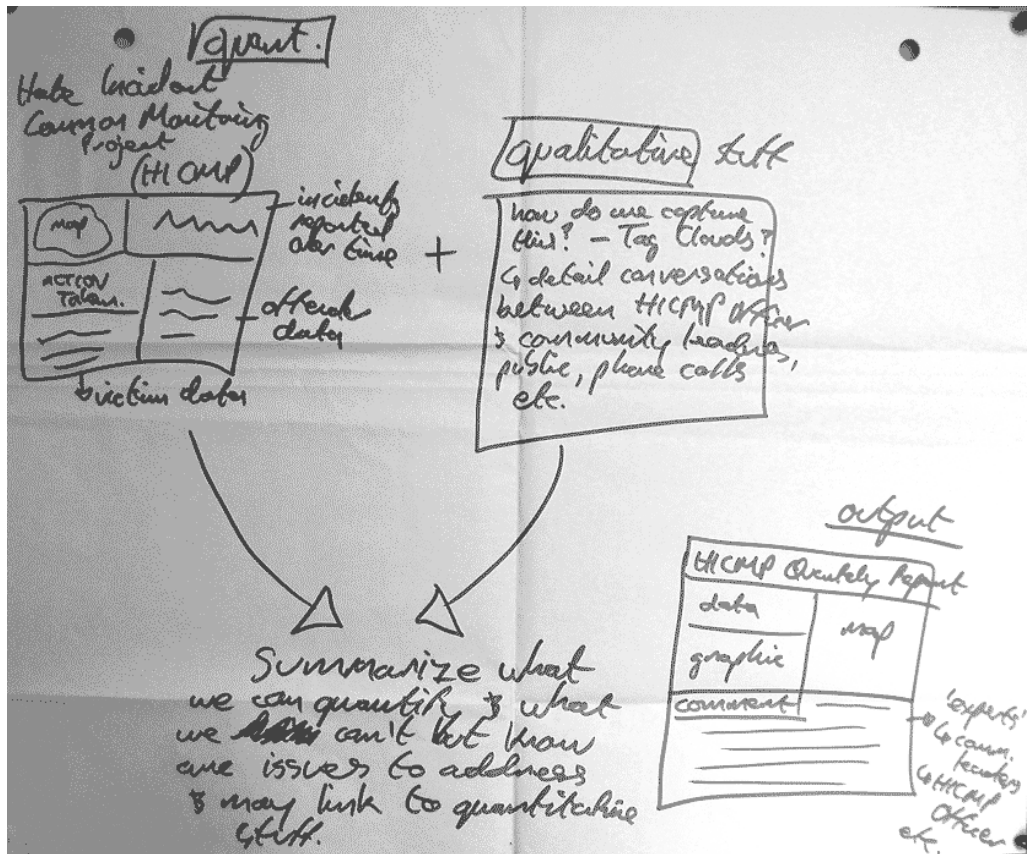 quant.
Hate Incident
Common Monitoring
Project
(HICMP)
map
ACTION
Taken.
incidents
reported
over time
offender
data
victim data
+
qualitative stuff
how do we capture
this? - Tag Clouds?
↳ detail conversations
between HICMP Officer
& community leaders,
public, phone calls
etc.
Summarize what
we can quantify & what
we can't but know
are issues to address
& may link to quantitative
stuff.
output
HICMP Quately Report
data
graphic
map
comment
'experts'
↳ comm.
leaders
↳ HICMP
Officer
etc.